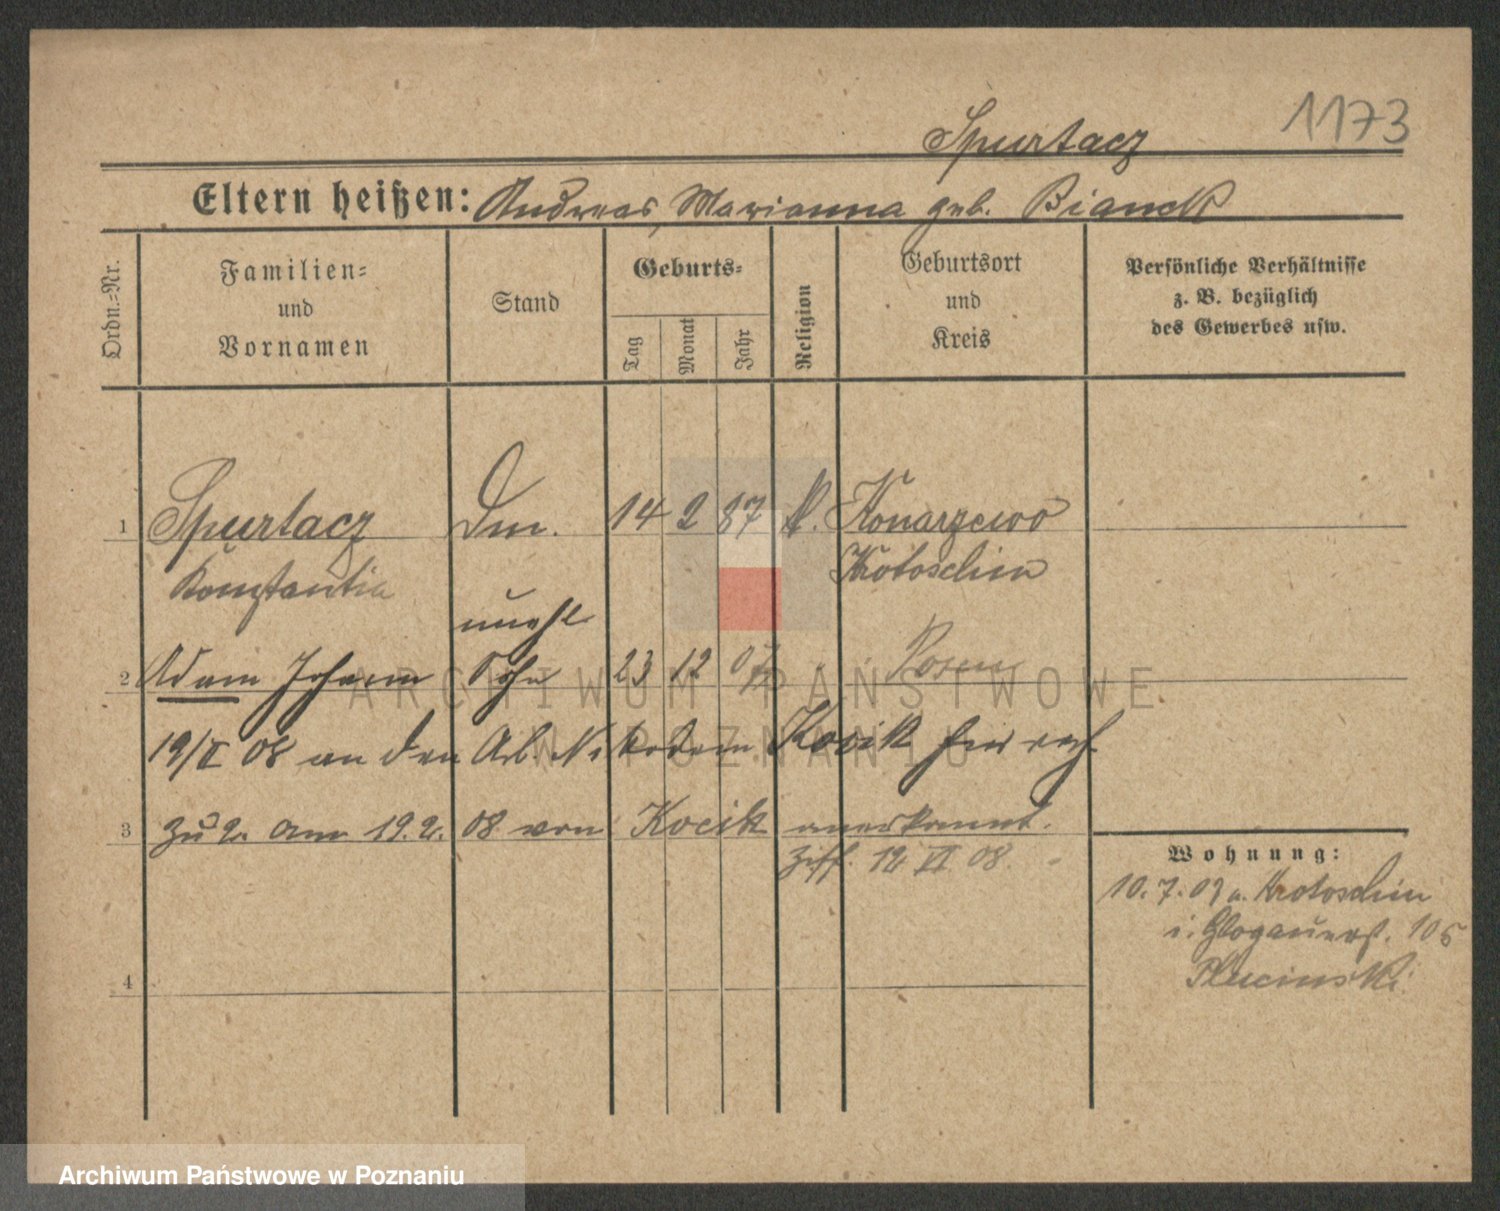 1173
Spurtacz
Eltern heißen: Andreas, Marianna geb. Bianek
Ordn.=Nr.
Familien=
und
Vornamen
Stand
Geburts=
Tag
Monat
Jahr
Religion
Geburtsort
und
Kreis
Persönliche Verhältnisse
z. B. bezüglich
des Gewerbes usw.
1 Spurtacz Dm. 14 2 87 k. Konarzewo
Konstantia Krotoschin
unehl
2 Adam Johann Sohn 23 12 07 Posen
ARCHIWUM PAŃSTWOWE
19/II 08 an den Arb. Nikodem Kocik
W POZNANIU
3 zu 2. am 19.2. 08 von Kocik anerkannt.
12 VI 08.
Wohnung:
10.7.09 a. Krotoschin
i. Glogauerst. 105
Plucinski
4
Archiwum Państwowe w Poznaniu